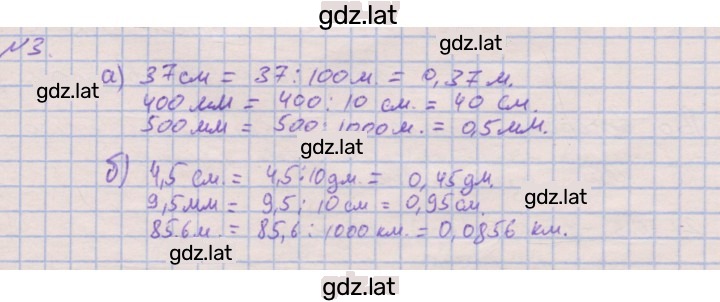 gdz.lat
№3.
gdz.lat
а) 37 см = 37 : 100 м. = 0,37 м.
gdz.lat
400 мм = 400 : 10 см. = 40 см.
500 мм = 500 : 1000 м. = 0,5 мм.
gdz.lat
б) 4,5 см. = 4,5 : 10 дм. = 0,45 дм.
gdz.lat
9,5 мм = 9,5 : 10 см = 0,95 см.
85.6 м. = 85,6 : 1000 км. = 0,0856 км.
gdz.lat
gdz.lat